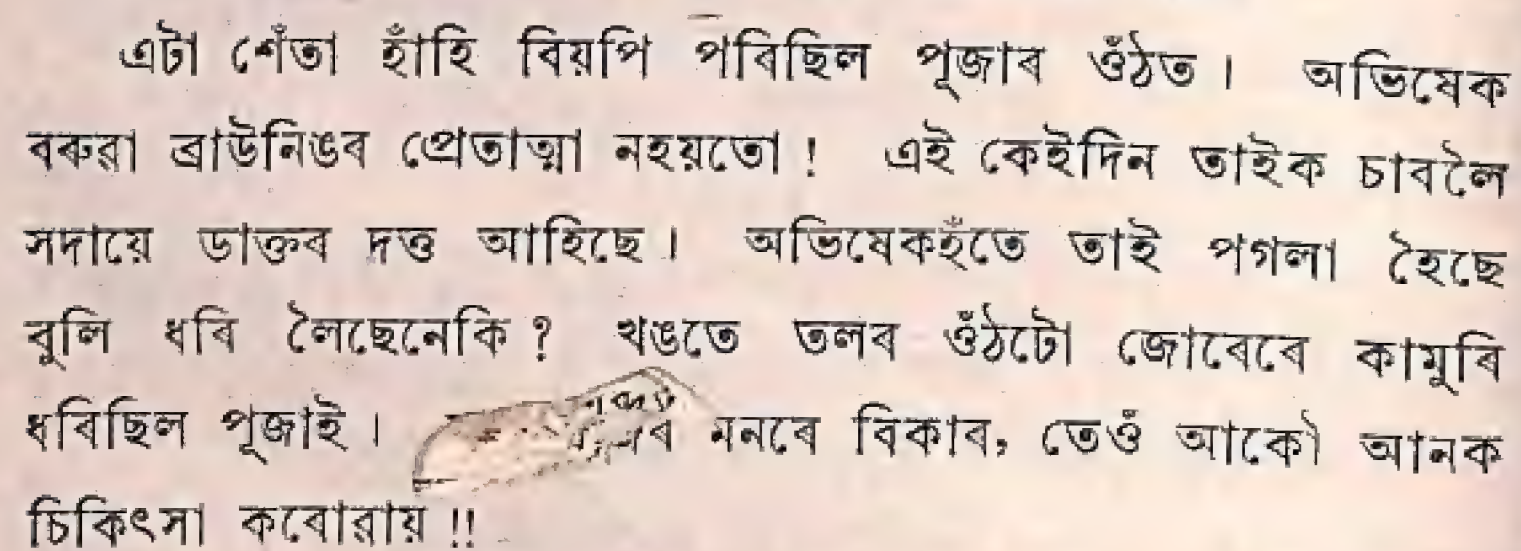 এটা শেঁতা হাঁহি বিয়পি পৰিছিল পূজাৰ ওঁঠত । অভিষেক
বৰুৱা ব্ৰাউনিঙৰ প্ৰেতাত্মা নহয়তো ! এই কেইদিন তাইক চাবলৈ
সদায়ে ডাক্তৰ দত্ত আহিছে । অভিষেকহঁতে তাই পগলা হৈছে
বুলি ধৰি লৈছেনেকি ? খঙতে তলৰ ওঁঠটো জোৰেৰে কামুৰি
ধৰিছিল পূজাই । মনৰে বিকাৰ, তেওঁ আকৌ আনক
চিকিৎসা কৰোৱায় !!